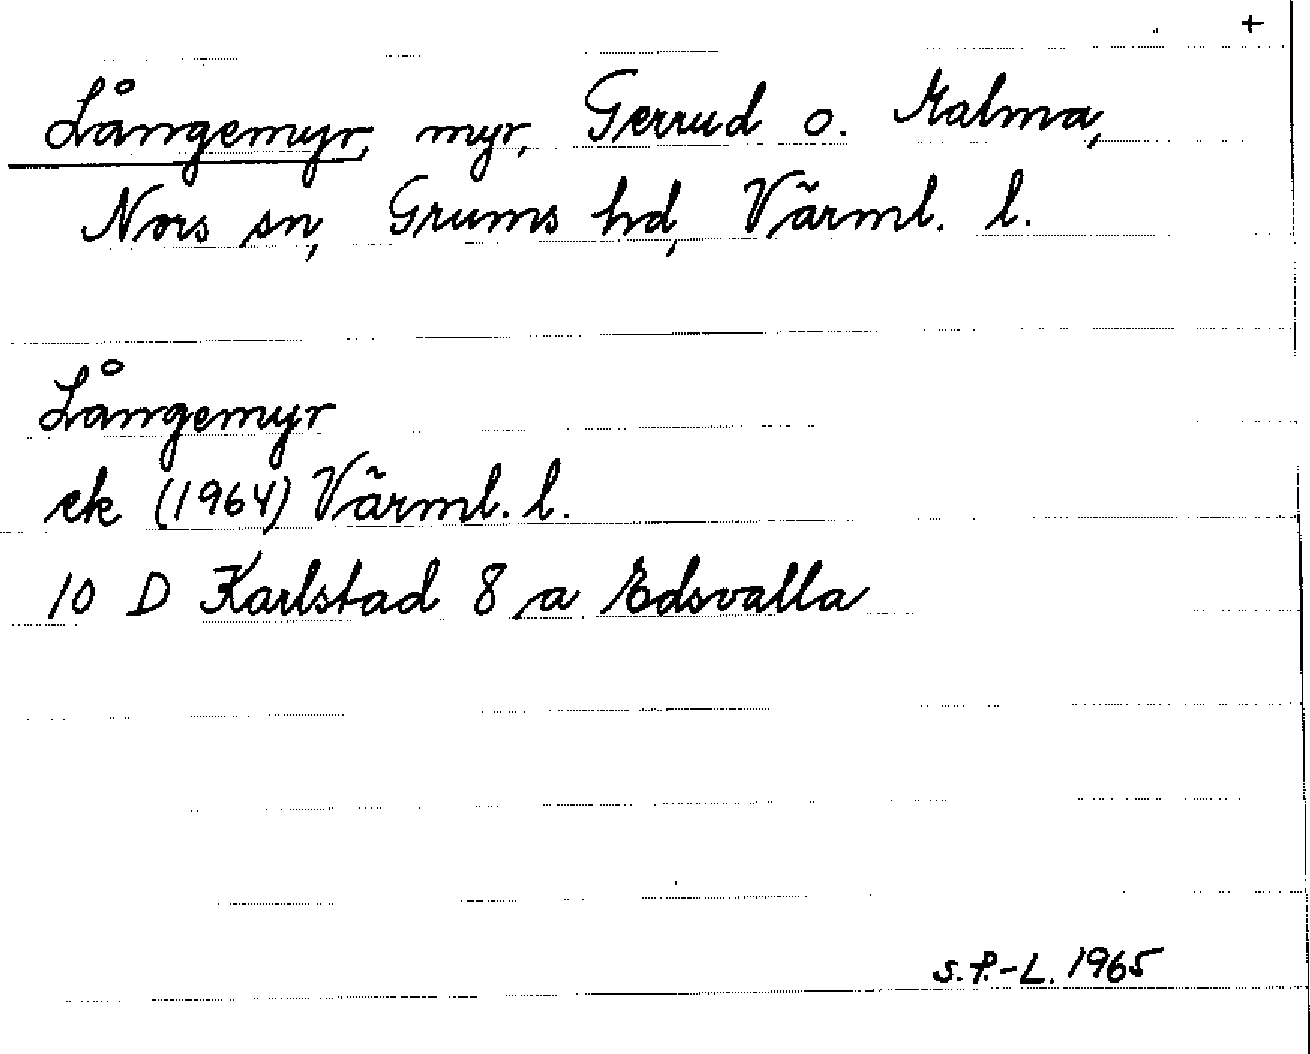 +
Långemyr, myr, Gerrud o. Malma,
Nors sn, Grums hd, Värml. l.
Långemyr
ek (1964) Värml. l.
10 D Karlstad 8 a Edsvalla
S.P.-L. 1965